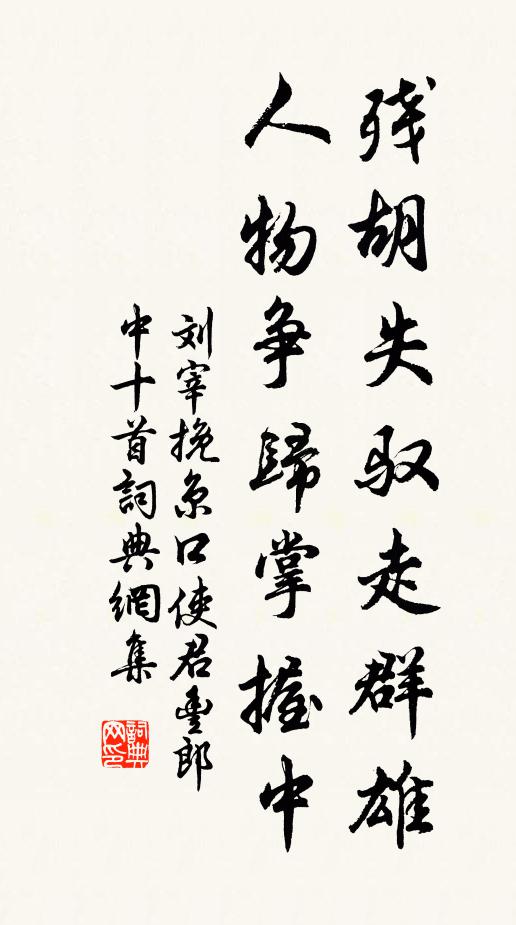 残胡失驭走群雄
人物争歸掌握中
刘宰挽京口使君豐郎
中十首詞典網集
詞典网印